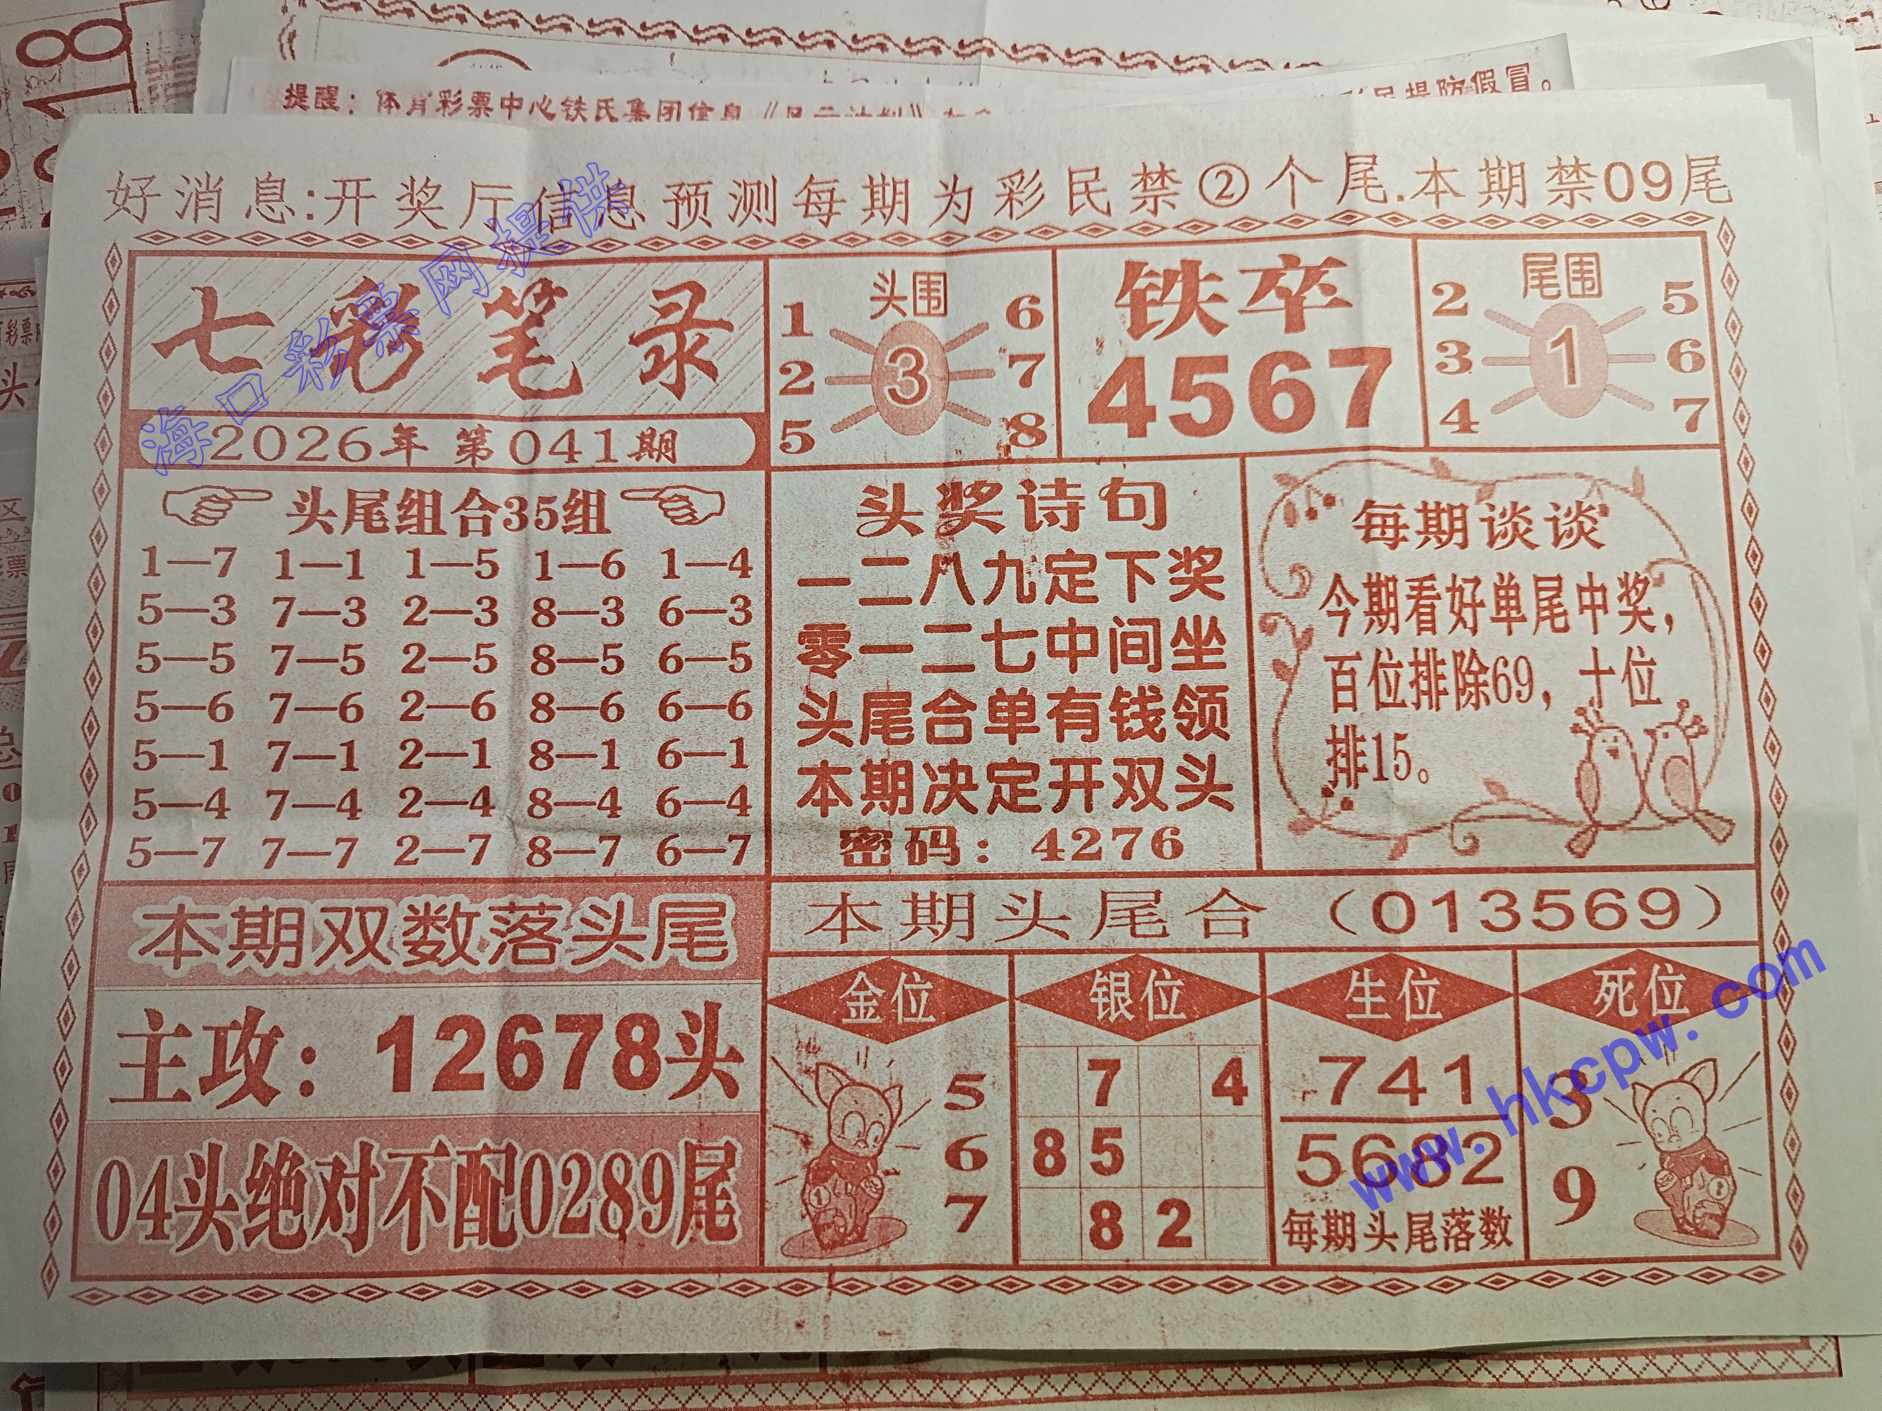 提醒：体育彩票中心铁氏集团信息
提防假冒。
好消息:开奖厅信息预测每期为彩民禁②个尾.本期禁09尾
海口彩票网提供
七彩笔录
2026年 第041期
头围
1 6
2 3 7
5 8
铁卒
4567
尾围
2 5
3 1 6
4 7
头尾组合35组
1—7 1—1 1—5 1—6 1—4
5—3 7—3 2—3 8—3 6—3
5—5 7—5 2—5 8—5 6—5
5—6 7—6 2—6 8—6 6—6
5—1 7—1 2—1 8—1 6—1
5—4 7—4 2—4 8—4 6—4
5—7 7—7 2—7 8—7 6—7
头奖诗句
一二八九定下奖
零一二七中间坐
头尾合单有钱领
本期决定开双头
密码：4276
每期谈谈
今期看好单尾中奖，
百位排除69，十位
排15。
本期双数落头尾
主攻：12678头
04头绝对不配0289尾
本期头尾合（013569）
金位
5
6
7
银位
7 4
8 5
8 2
生位
741
5682
每期头尾落数
死位
3
9
www.hkcpw.com